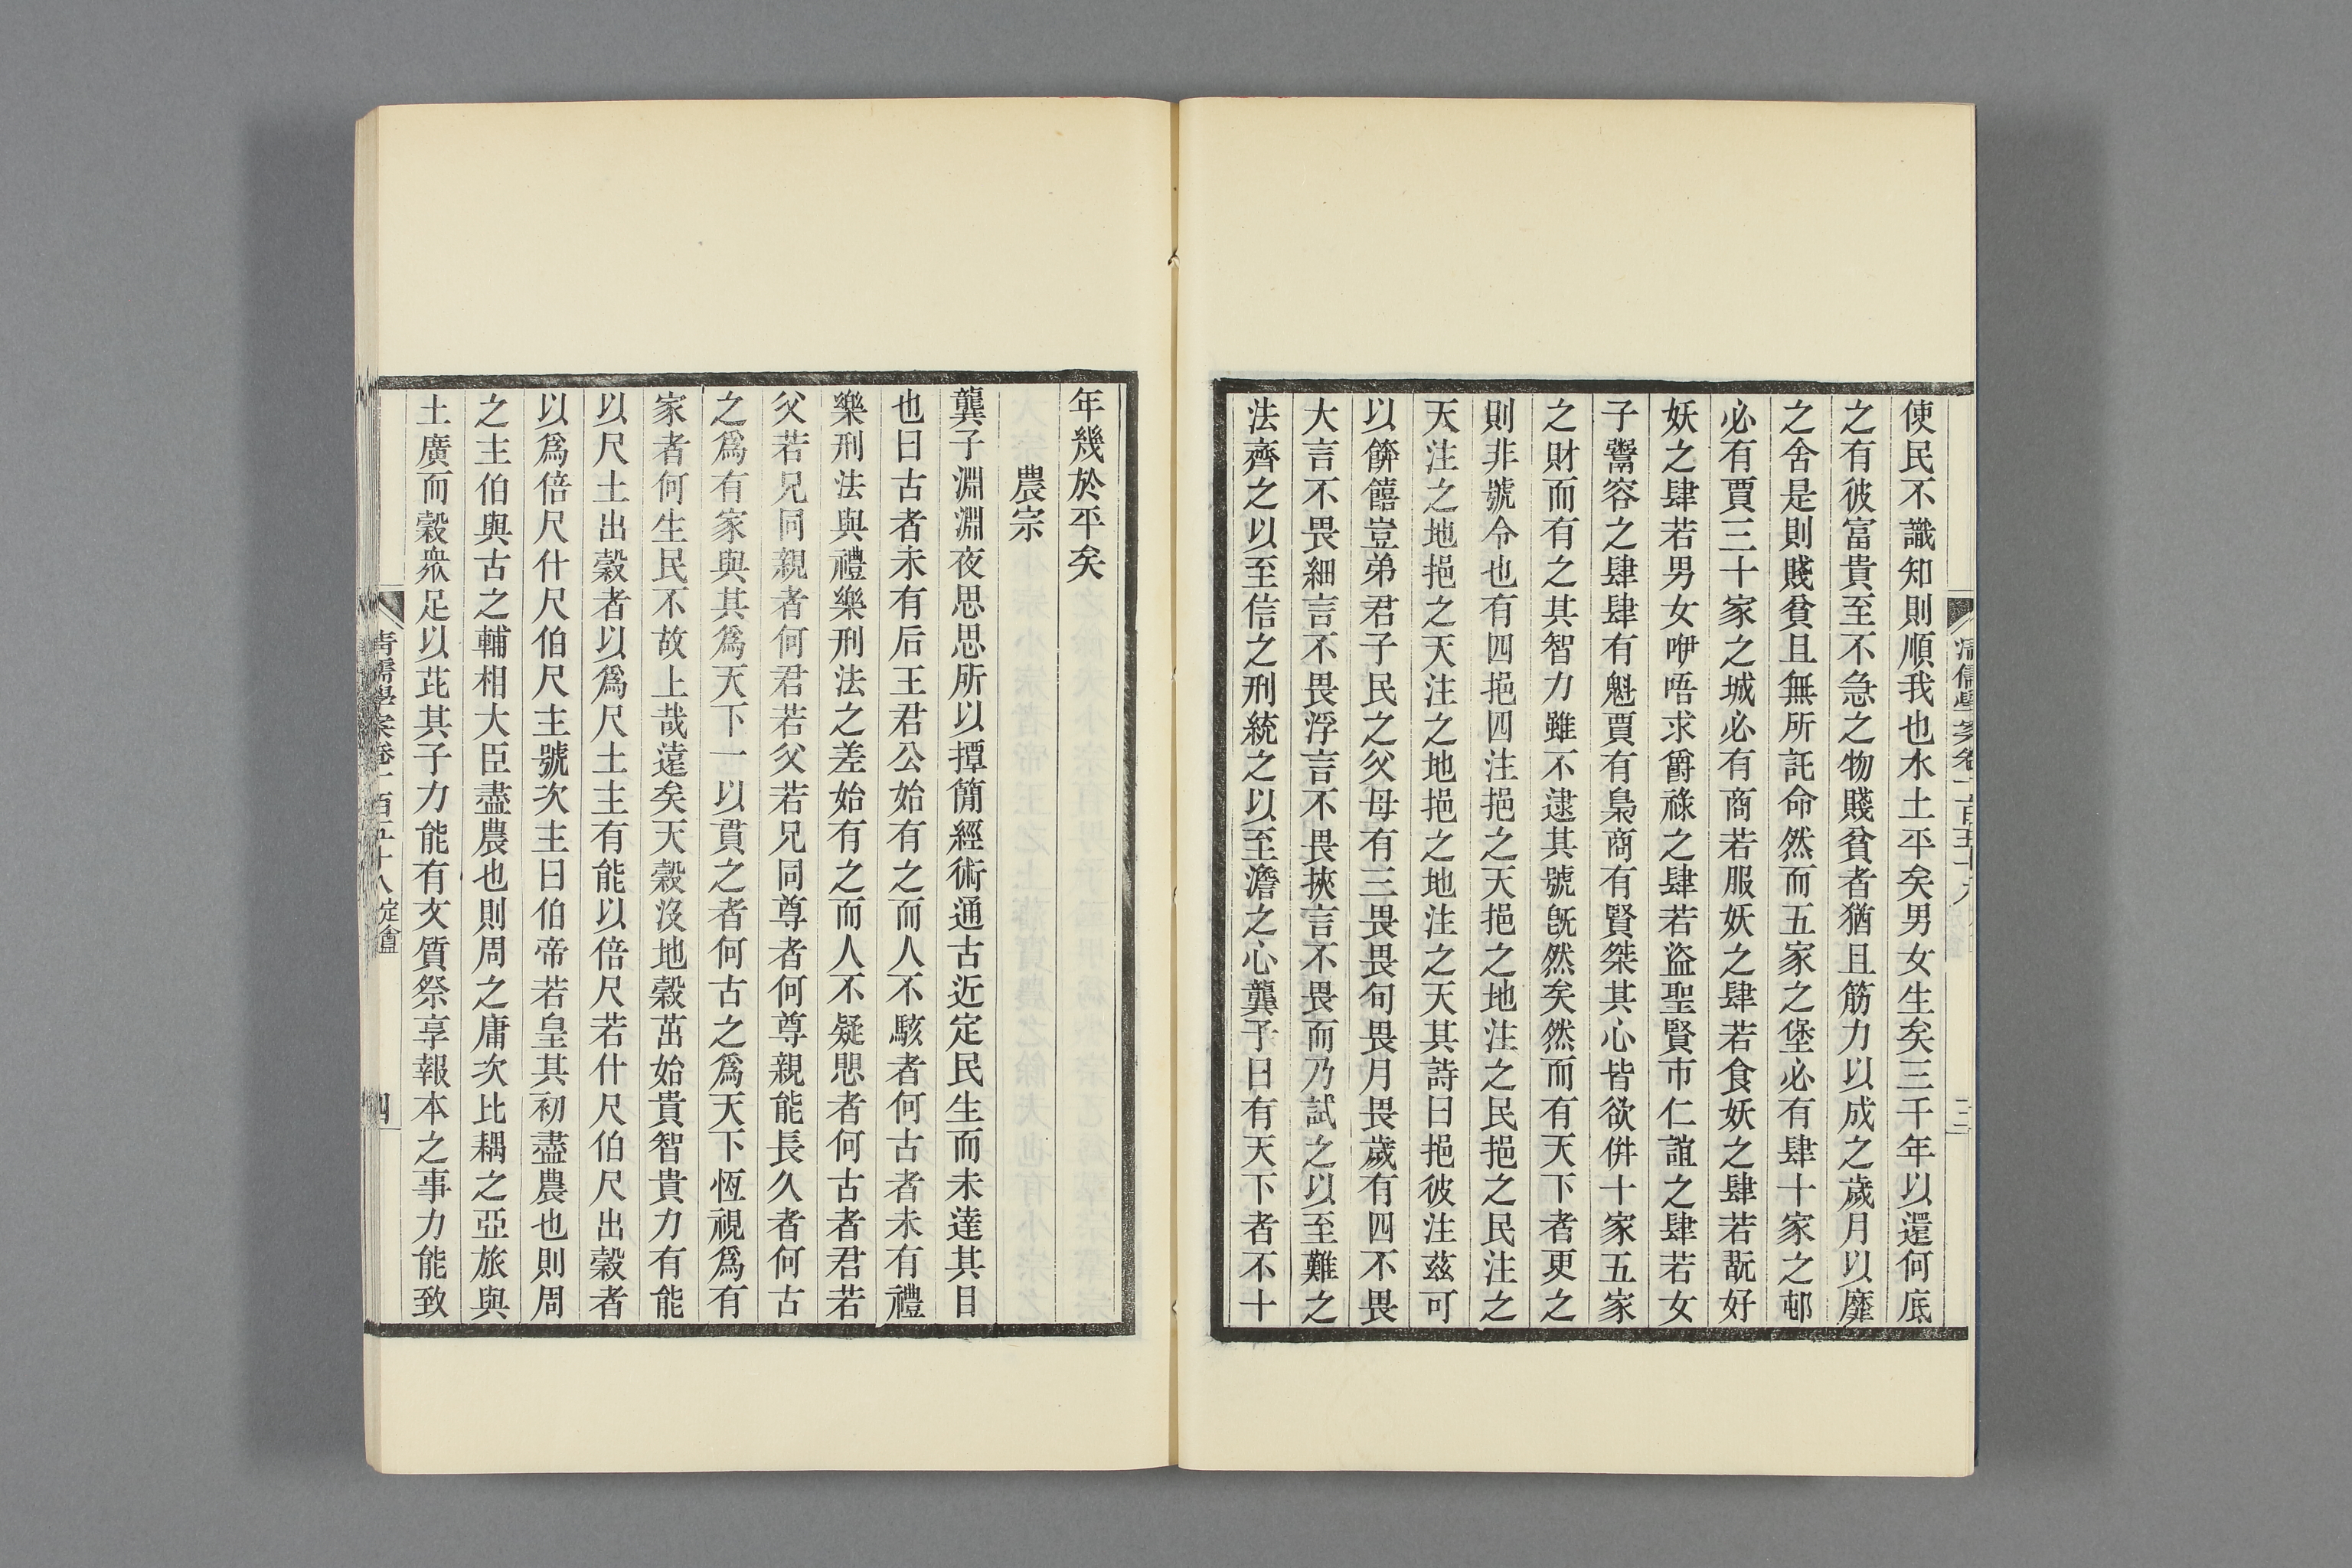 使民不識知則順我也水土平矣男女生矣三千年以還何底
之有彼富貴至不急之物賤貧者猶且筋力以成之歲月以靡
之舍是則賤貧且無所託命然而五家之堡必有肆十家之邨
必有賈三十家之城必有商若服妖之肆若食妖之肆若翫好
妖之肆若男女咿唔求爵祿之肆若盜聖賢市仁誼之肆若女
子鬻容之肆肆有魁賈有梟商有賢桀其心皆欲併十家五家
之財而有之其智力雖不逮其號既然矣然而有天下者更之
則非號令也有四挹四注挹之天挹之地注之民挹之民注之
天注之地挹之天注之地挹之地注之天其詩曰挹彼注茲可
以餴饎豈弟君子民之父母有三畏畏旬畏月畏歲有四不畏
大言不畏細言不畏浮言不畏挾言不畏而乃試之以至難之
法齊之以至信之刑統之以至澹之心龔子曰有天下者不十
年幾於平矣
農宗
龔子淵淵夜思思所以撢簡經術通古近定民生而未達其目
也曰古者未有后王君公始有之而人不駭者何古者未有禮
樂刑法與禮樂刑法之差始有之而人不疑懇者何古者君若
父若兄同親者何君若父若兄同尊者何尊親能長久者何古
之爲有家與其爲天下一以貫之者何古之爲天下恆視爲有
家者何生民不故上哉遠矣天穀沒地穀茁始貴智貴力有能
以尺土出穀者以爲尺土主有能以倍尺若什尺伯尺出穀者
以爲倍尺什尺伯尺主號次主曰伯帝若皇其初盡農也則周
之主伯與古之輔相大臣盡農也則周之庸次比耦之亞旅與
土廣而穀眾足以芘其子力能有文質祭享報本之事力能致
清儒學案卷一百五十八 定盦 四